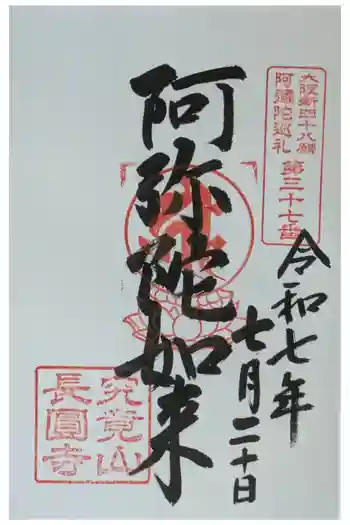 大阪新四十八願
阿彌陀巡礼
第三十七番
令和七年
七月二十日
阿弥陀如来
究竟山
長圓寺